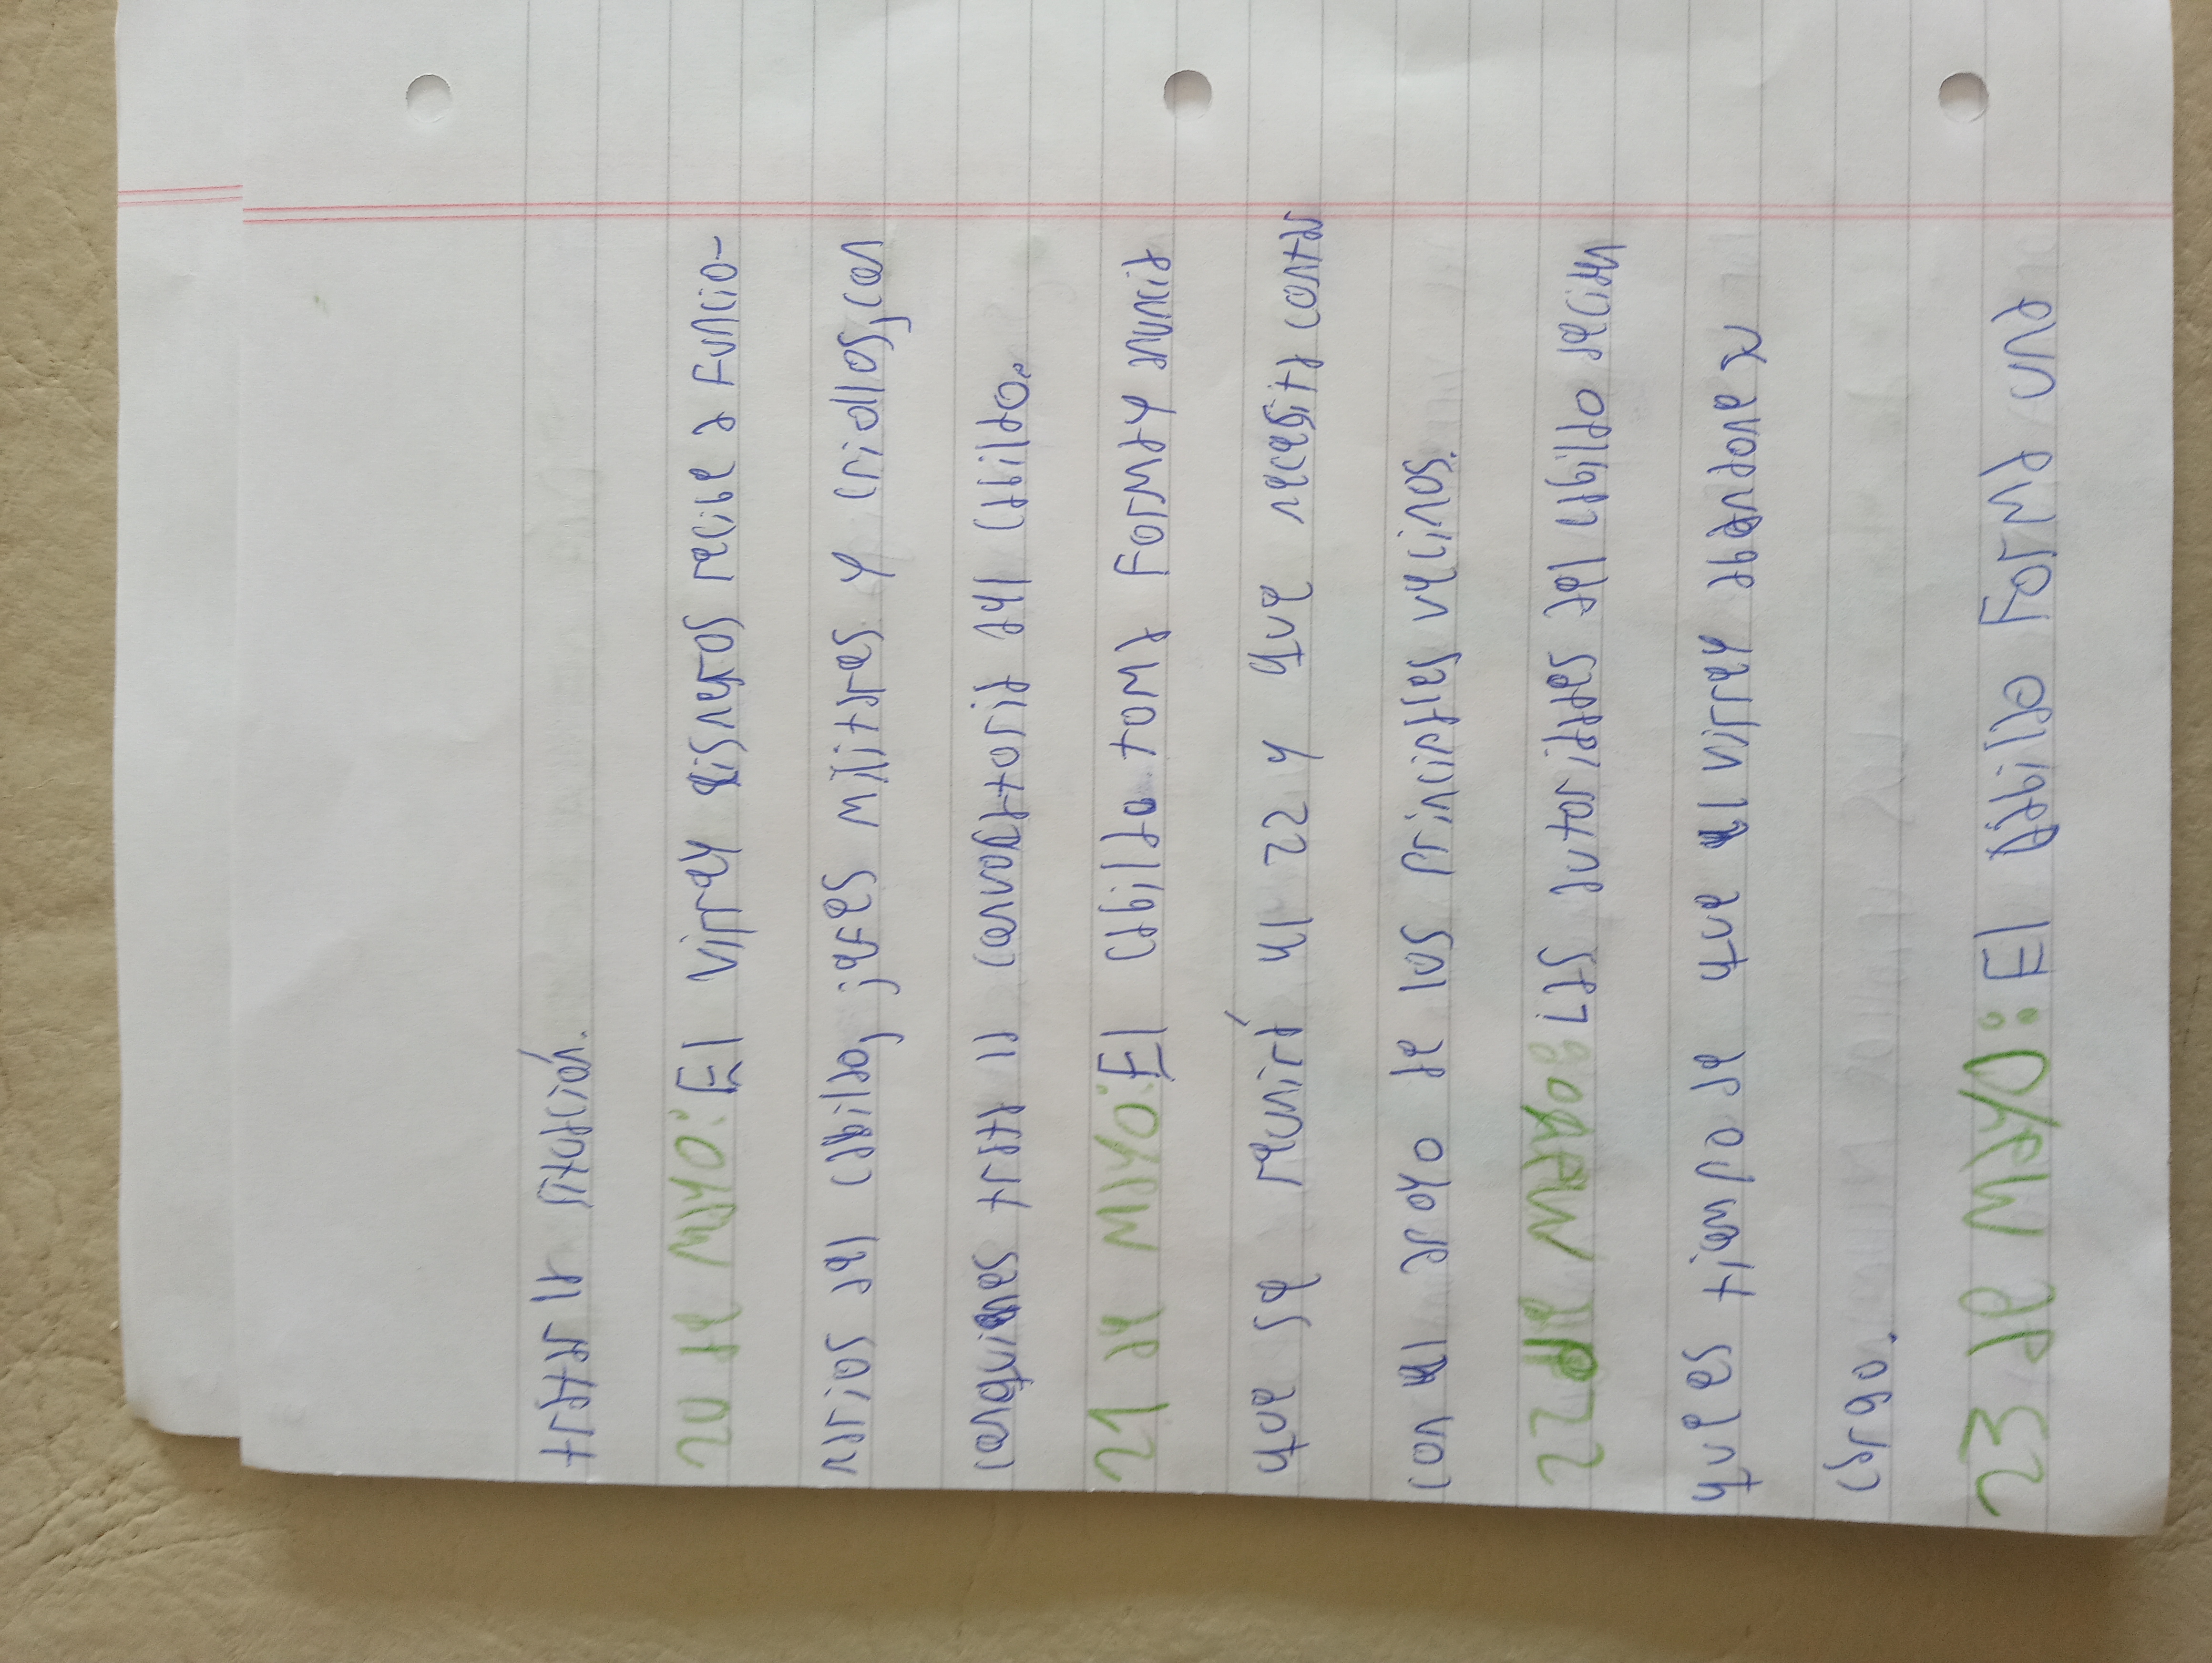 tratar la situación.
20 de Mayo: El virrey Cisneros recibe a funcio-
narios del cabildo, jefes militares y criollos, con
la convocatoria del Cabildo.
21 de Mayo: El cabildo toma forma y anuncia
que se reunirá el 22 y que necesita contar
con el apoyo de los vecinos.
22 de Mayo: Las autoridades del cabildo
que es tiempo de que el virrey abandone
cargo.
23 de Mayo: El Cabildo forma una